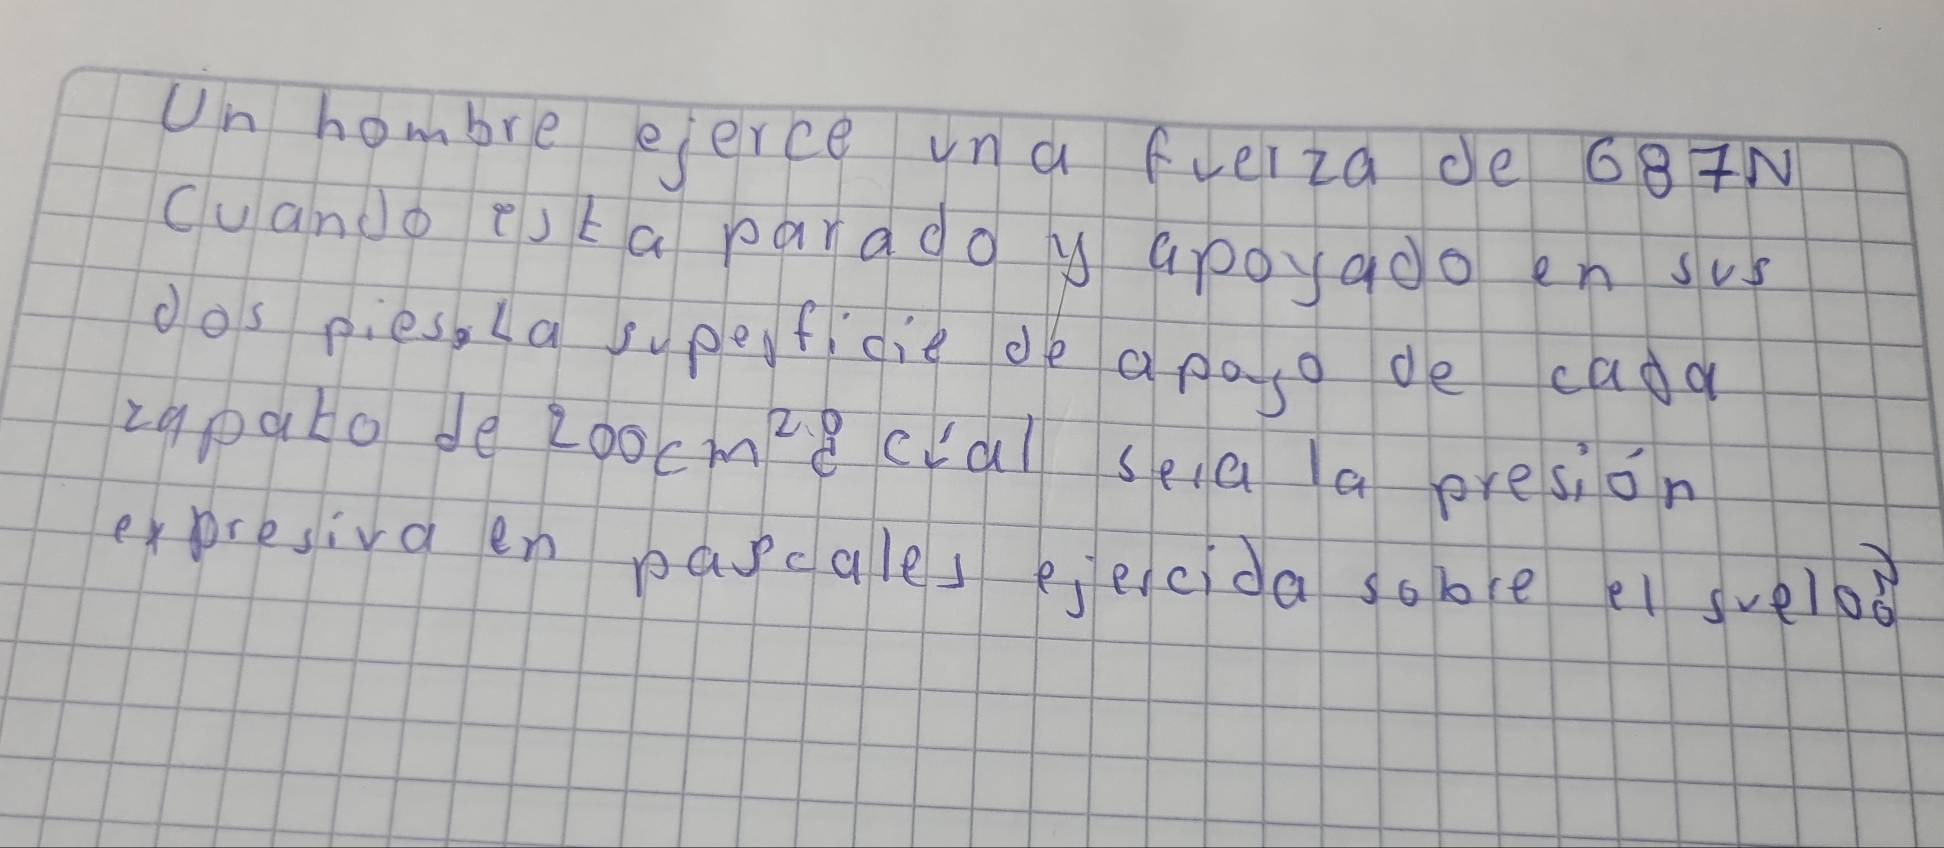 Un hombre ejerce una fuerza de 687N
Cuando esta parado y apoyado en sus
dos pies. La superficie de apoyo de cada
zapato de 200cm². ¿cúal sera la presión
expresiva en pascales ejercida sobre el suelo?